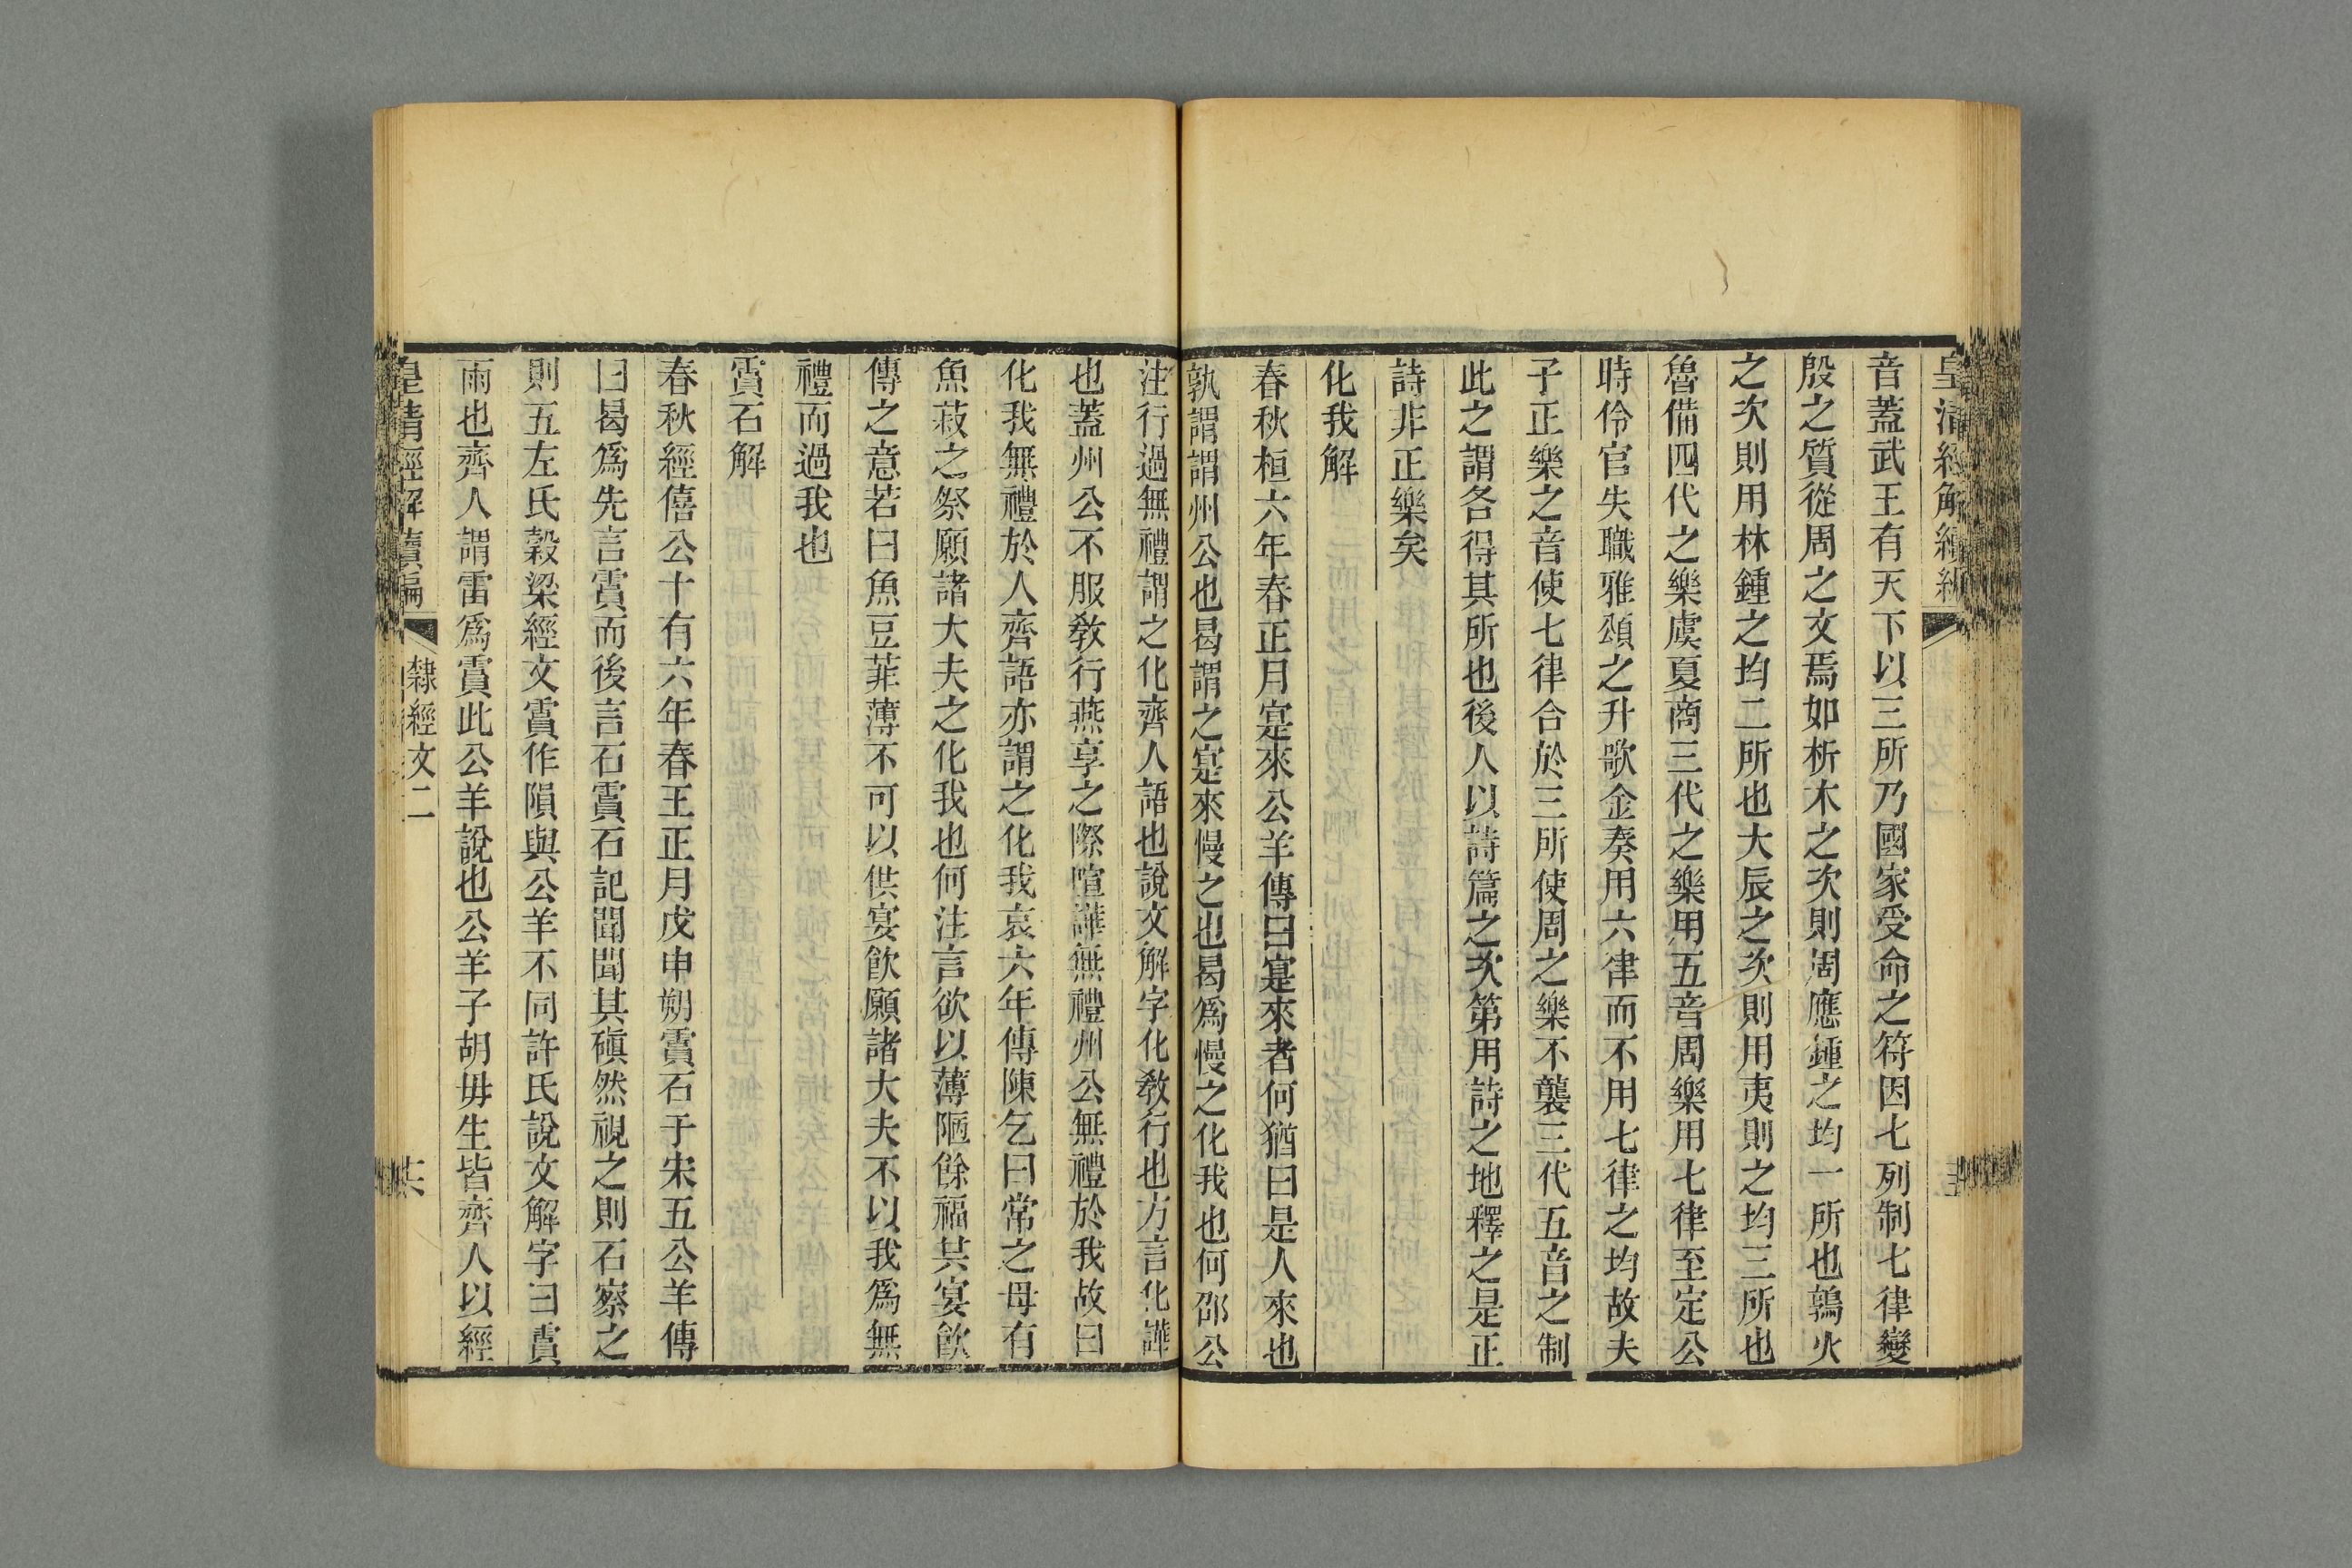 音蓋武王有天下以三所乃國家受命之符因七列制七律變
殷之質從周之文焉如析木之次則周應鍾之均一所也鶉火
之次則用林鍾之均二所也大辰之次則用夷則之均三所也
魯備四代之樂虞夏商三代之樂用五音周樂用七律至定公
時伶官失職雅頌之升歌金奏用六律而不用七律之均故夫
子正樂之音使七律合於三所使周之樂不襲三代五音之制
此之謂各得其所也後人以詩篇之次第用詩之地釋之是正
詩非正樂矣
化我解
春秋桓六年春正月寔來公羊傳曰寔來者何猶曰是人來也
孰謂謂州公也曷謂之寔來慢之也曷爲慢之化我也何邵公
注行過無禮謂之化齊人語也說文解字化教行也方言化譁
也蓋州公不服教行燕享之際喧譁無禮州公無禮於我故曰
化我無禮於人齊語亦謂之化我哀六年傳陳乞曰常之母有
魚菽之祭願諸大夫之化我也何注言欲以薄陋餘福共宴飮
傳之意若曰魚豆菲薄不可以供宴飮願諸大夫不以我爲無
禮而過我也
霣石解
春秋經僖公十有六年春王正月戊申朔霣石于宋五公羊傳
曰曷爲先言霣而後言石霣石記聞聞其磌然視之則石察之
則五左氏穀梁經文霣作隕與公羊不同許氏說文解字曰霣
雨也齊人謂雷爲霣此公羊說也公羊子胡毋生皆齊人以經
皇清經解續編
隸經文二